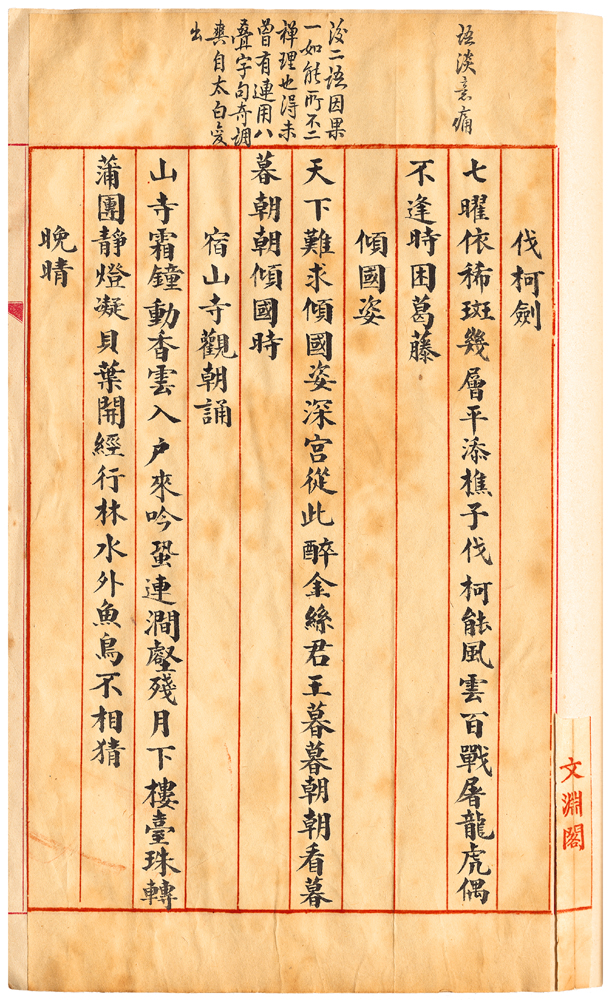 語淡意痛
伐柯劍
七曜依稀斑幾層平添樵子伐柯能風雲百戰屠龍虎偶
不逢時困葛藤
後二語因果
一如能所不二
禅理也得未
曾有連用八
叠字句奇調
爽自太白変
出
傾國姿
天下難求傾國姿深宮從此醉金絲君王暮暮朝朝看暮
暮朝朝傾國時
宿山寺觀朝誦
山寺霜鐘動香雲入户來吟蛩連澗壑殘月下樓臺珠轉
蒲團靜燈凝貝葉開經行林水外魚鳥不相猜
晚晴
文淵閣